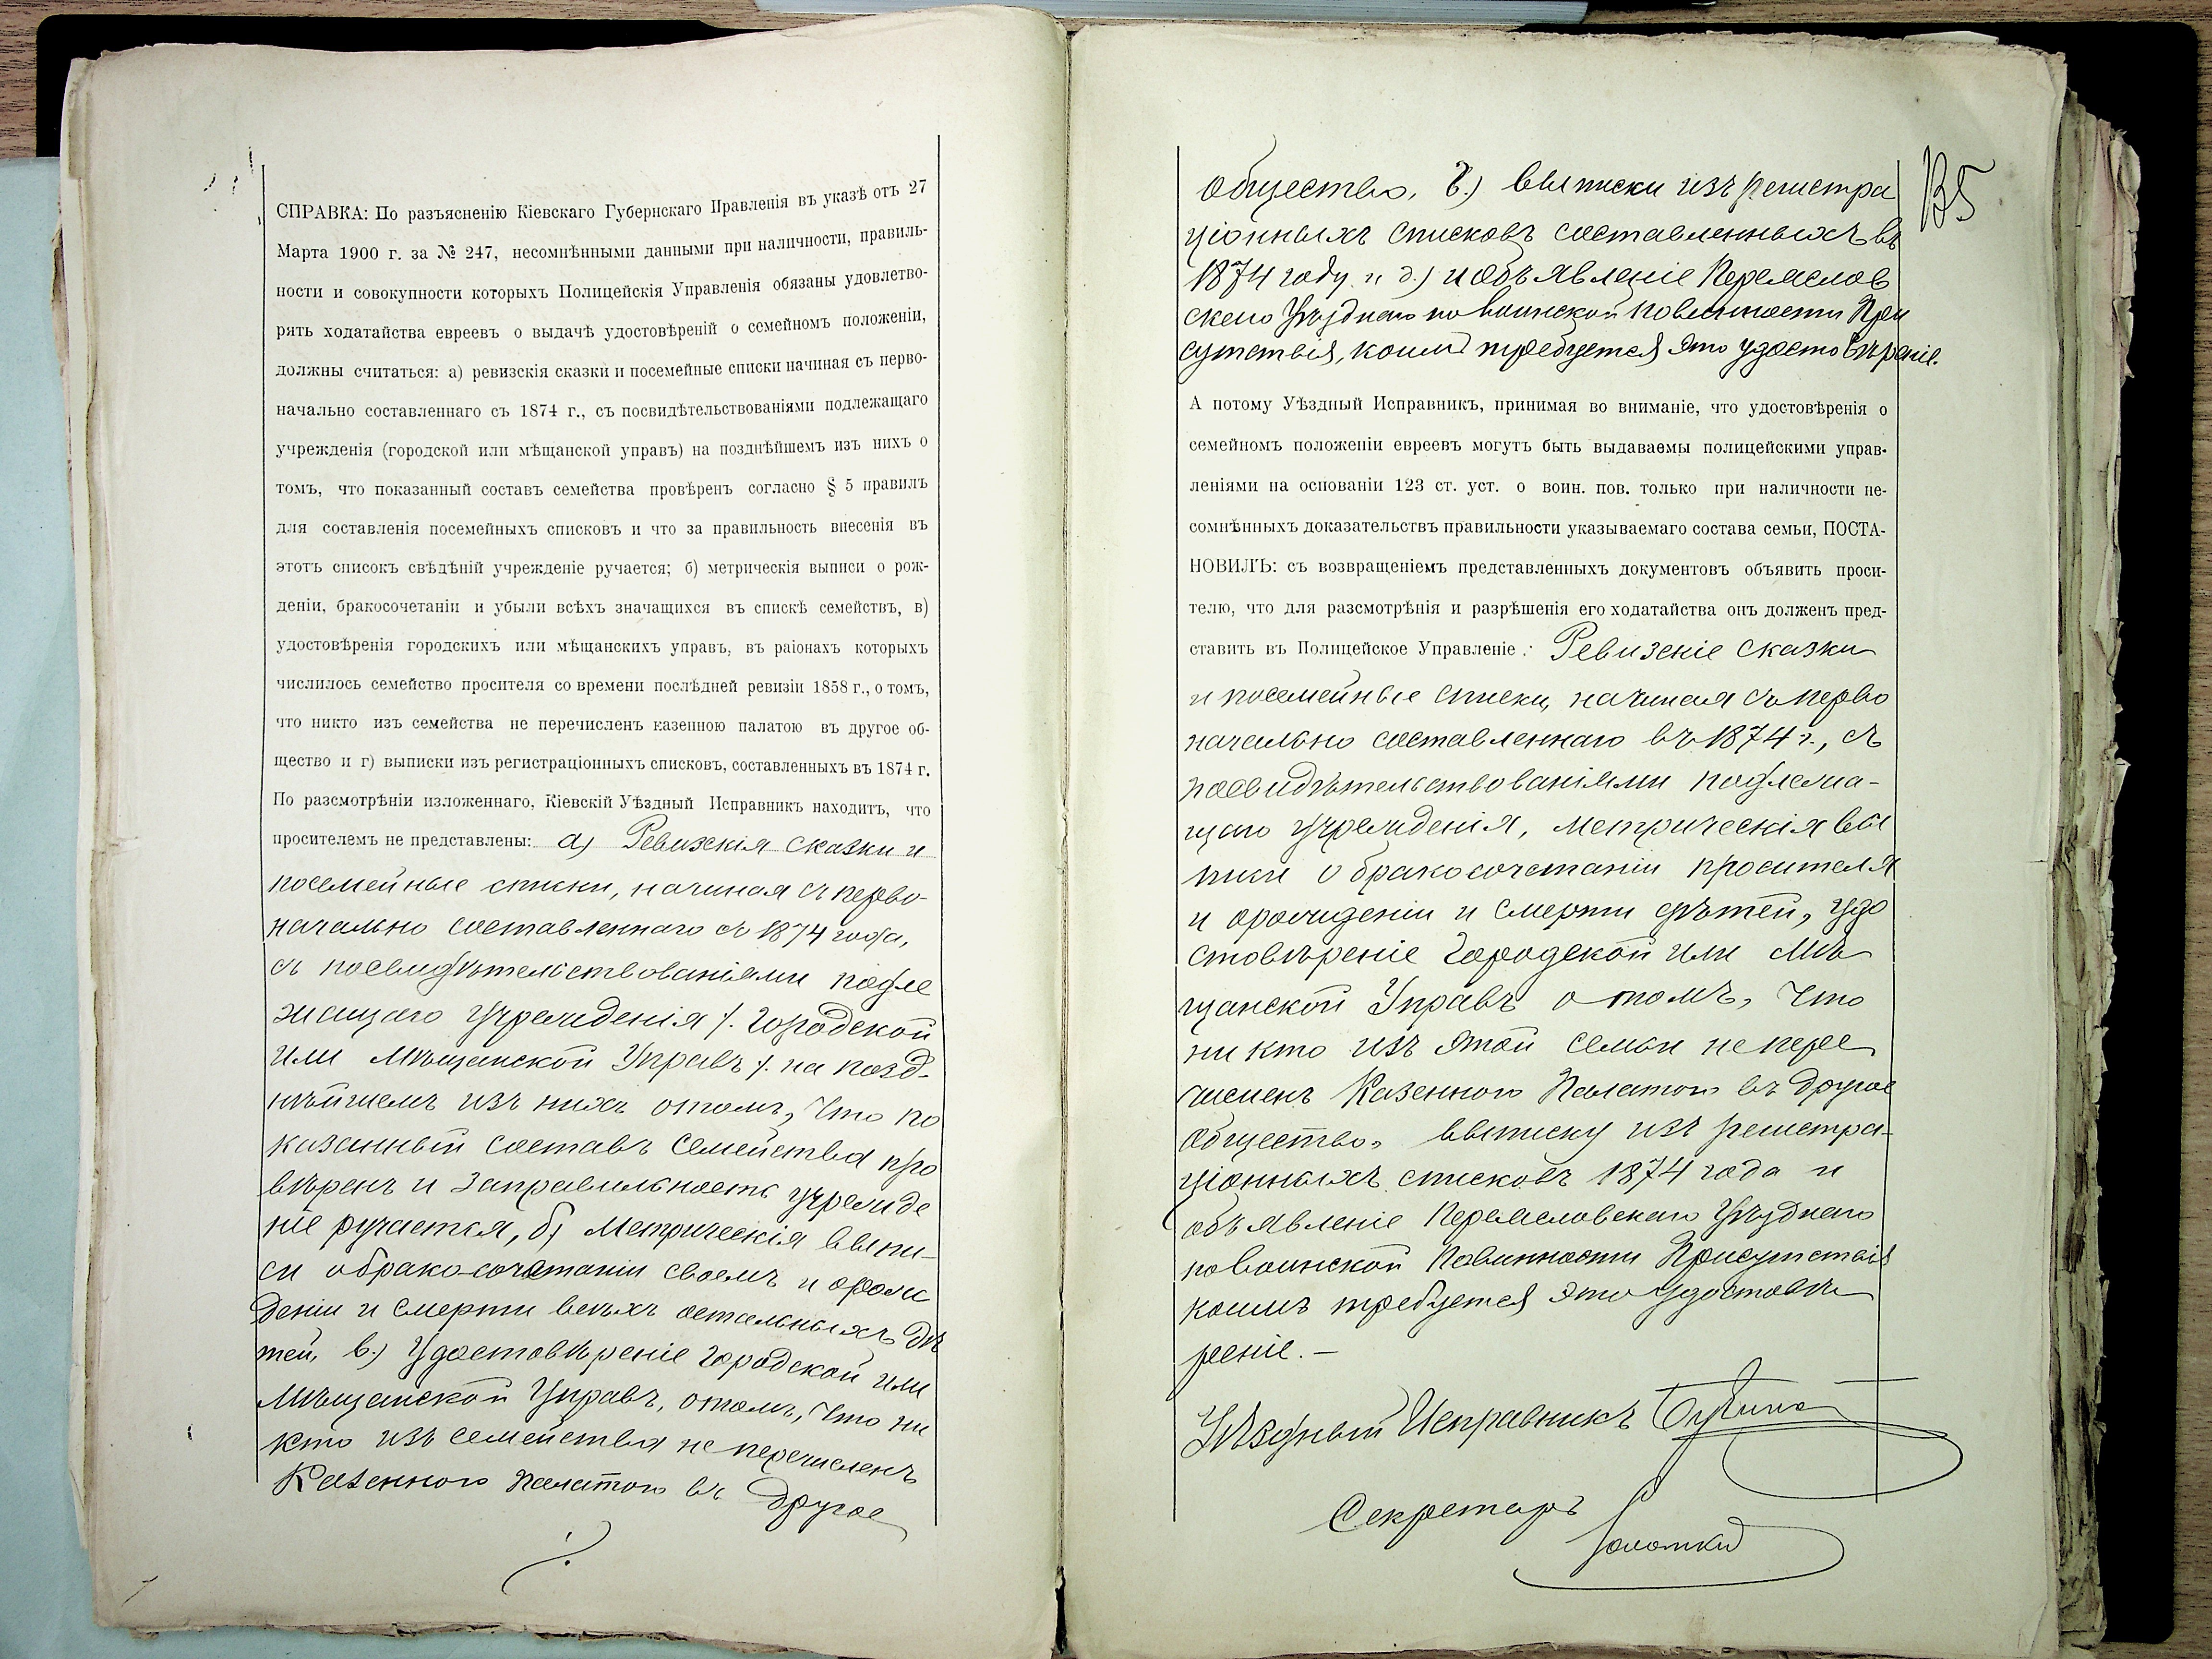 СПРАВКА: По разъясненію Кіевскаго Губернскаго Правленія въ указѣ отъ 27
Марта 1900 г. за № 247, несомнѣнными данными при наличности, правиль-
ности и совокупности которыхъ Полицейскія Управленія обязаны удовлетво-
рять ходатайства евреевъ о выдачѣ удостовѣреній о семейномъ положеніи,
должны считаться: а) ревизскія сказки и посемейные списки начиная съ перво-
начально составленнаго съ 1874 г., съ посвидѣтельствованіями подлежащаго
учрежденія (городской или мѣщанской управъ) на позднѣйшемъ изъ нихъ о
томъ, что показанный составъ семейства провѣренъ согласно § 5 правилъ
для составленія посемейныхъ списковъ и что за правильность внесенія въ
этотъ списокъ свѣдѣній учрежденіе ручается; б) метрическія выписи о рож-
деніи, бракосочетаніи и убыли всѣхъ значащихся въ спискѣ семействъ, в)
удостовѣренія городскихъ или мѣщанскихъ управъ, въ раіонахъ которыхъ
числилось семейство просителя со времени послѣдней ревизіи 1858 г., о томъ,
что никто изъ семейства не перечисленъ казенною палатою въ другое об-
щество и г) выписки изъ регистраціонныхъ списковъ, составленныхъ въ 1874 г.
По разсмотрѣніи изложеннаго, Кіевскій Уѣздный Исправникъ находитъ, что
просителемъ не представлены: а) Ревизскія сказки и
посемейные списки, начиная съ перво-
начально составленнаго съ 1874 года,
съ посвидѣтельствованіями подле
жащаго учрежденія /. Городской
или Мѣщанской Управъ /. на позд-
нѣйшемъ изъ нихъ отомъ, что по
казанный составъ семейства про
вѣренъ и заправильность учрежде
ніе ручается, б) Метрическія выпи-
си обрако-сочетаніи своемъ и орож
деніи и смерти всѣхъ остальныхъ дѣ
тей, в.) Удостовѣреніе Городской или
Мѣщанской Управъ, отомъ, что ни
кто изъ семейства не перечисленъ
Казенною Палатою въ другое
135
общество, г.) выписки изъ регистра
ціонныхъ списковъ составленныхъ въ
1874 году и д.) и объявленіе Переяслов
скаго Уѣзднаго по воинской повинности При
сутствія, коимъ требуется это удостовѣреніе.
А потому Уѣздный Исправникъ, принимая во вниманіе, что удостовѣренія о
семейномъ положеніи евреевъ могутъ быть выдаваемы полицейскими управ-
леніями на основаніи 123 ст. уст. о воин. пов. только при наличности не-
сомнѣнныхъ доказательствъ правильности указываемаго состава семьи, ПОСТА-
НОВИЛЪ: съ возвращеніемъ представленныхъ документовъ объявить проси-
телю, что для разсмотрѣнія и разрѣшенія его ходатайства онъ долженъ пред-
ставить въ Полицейское Управленіе: Ревизскіе сказки
и посемейные списки, начиная съ перво
начально составленнаго въ 1874 г., съ
посвидѣтельствованіями подлежа-
щаго учрежденія, метрическія вы
писи о бракосочетаніи просителя
и орожденіи и смерти дѣтей, удо
стовѣреніе Городской или Мѣ
щанской Управъ о томъ, что
никто изъ этой семьи не пере
численъ Казенною Палатою въ другое
общество, выписку изъ регистра-
ціонныхъ списковъ 1874 года и
объявленіе Переясловскаго Уѣзднаго
по воинской Повинности Присутствія
коимъ требуется это удостовѣ
реніе. –
Уѣздный Исправникъ
Секретарь